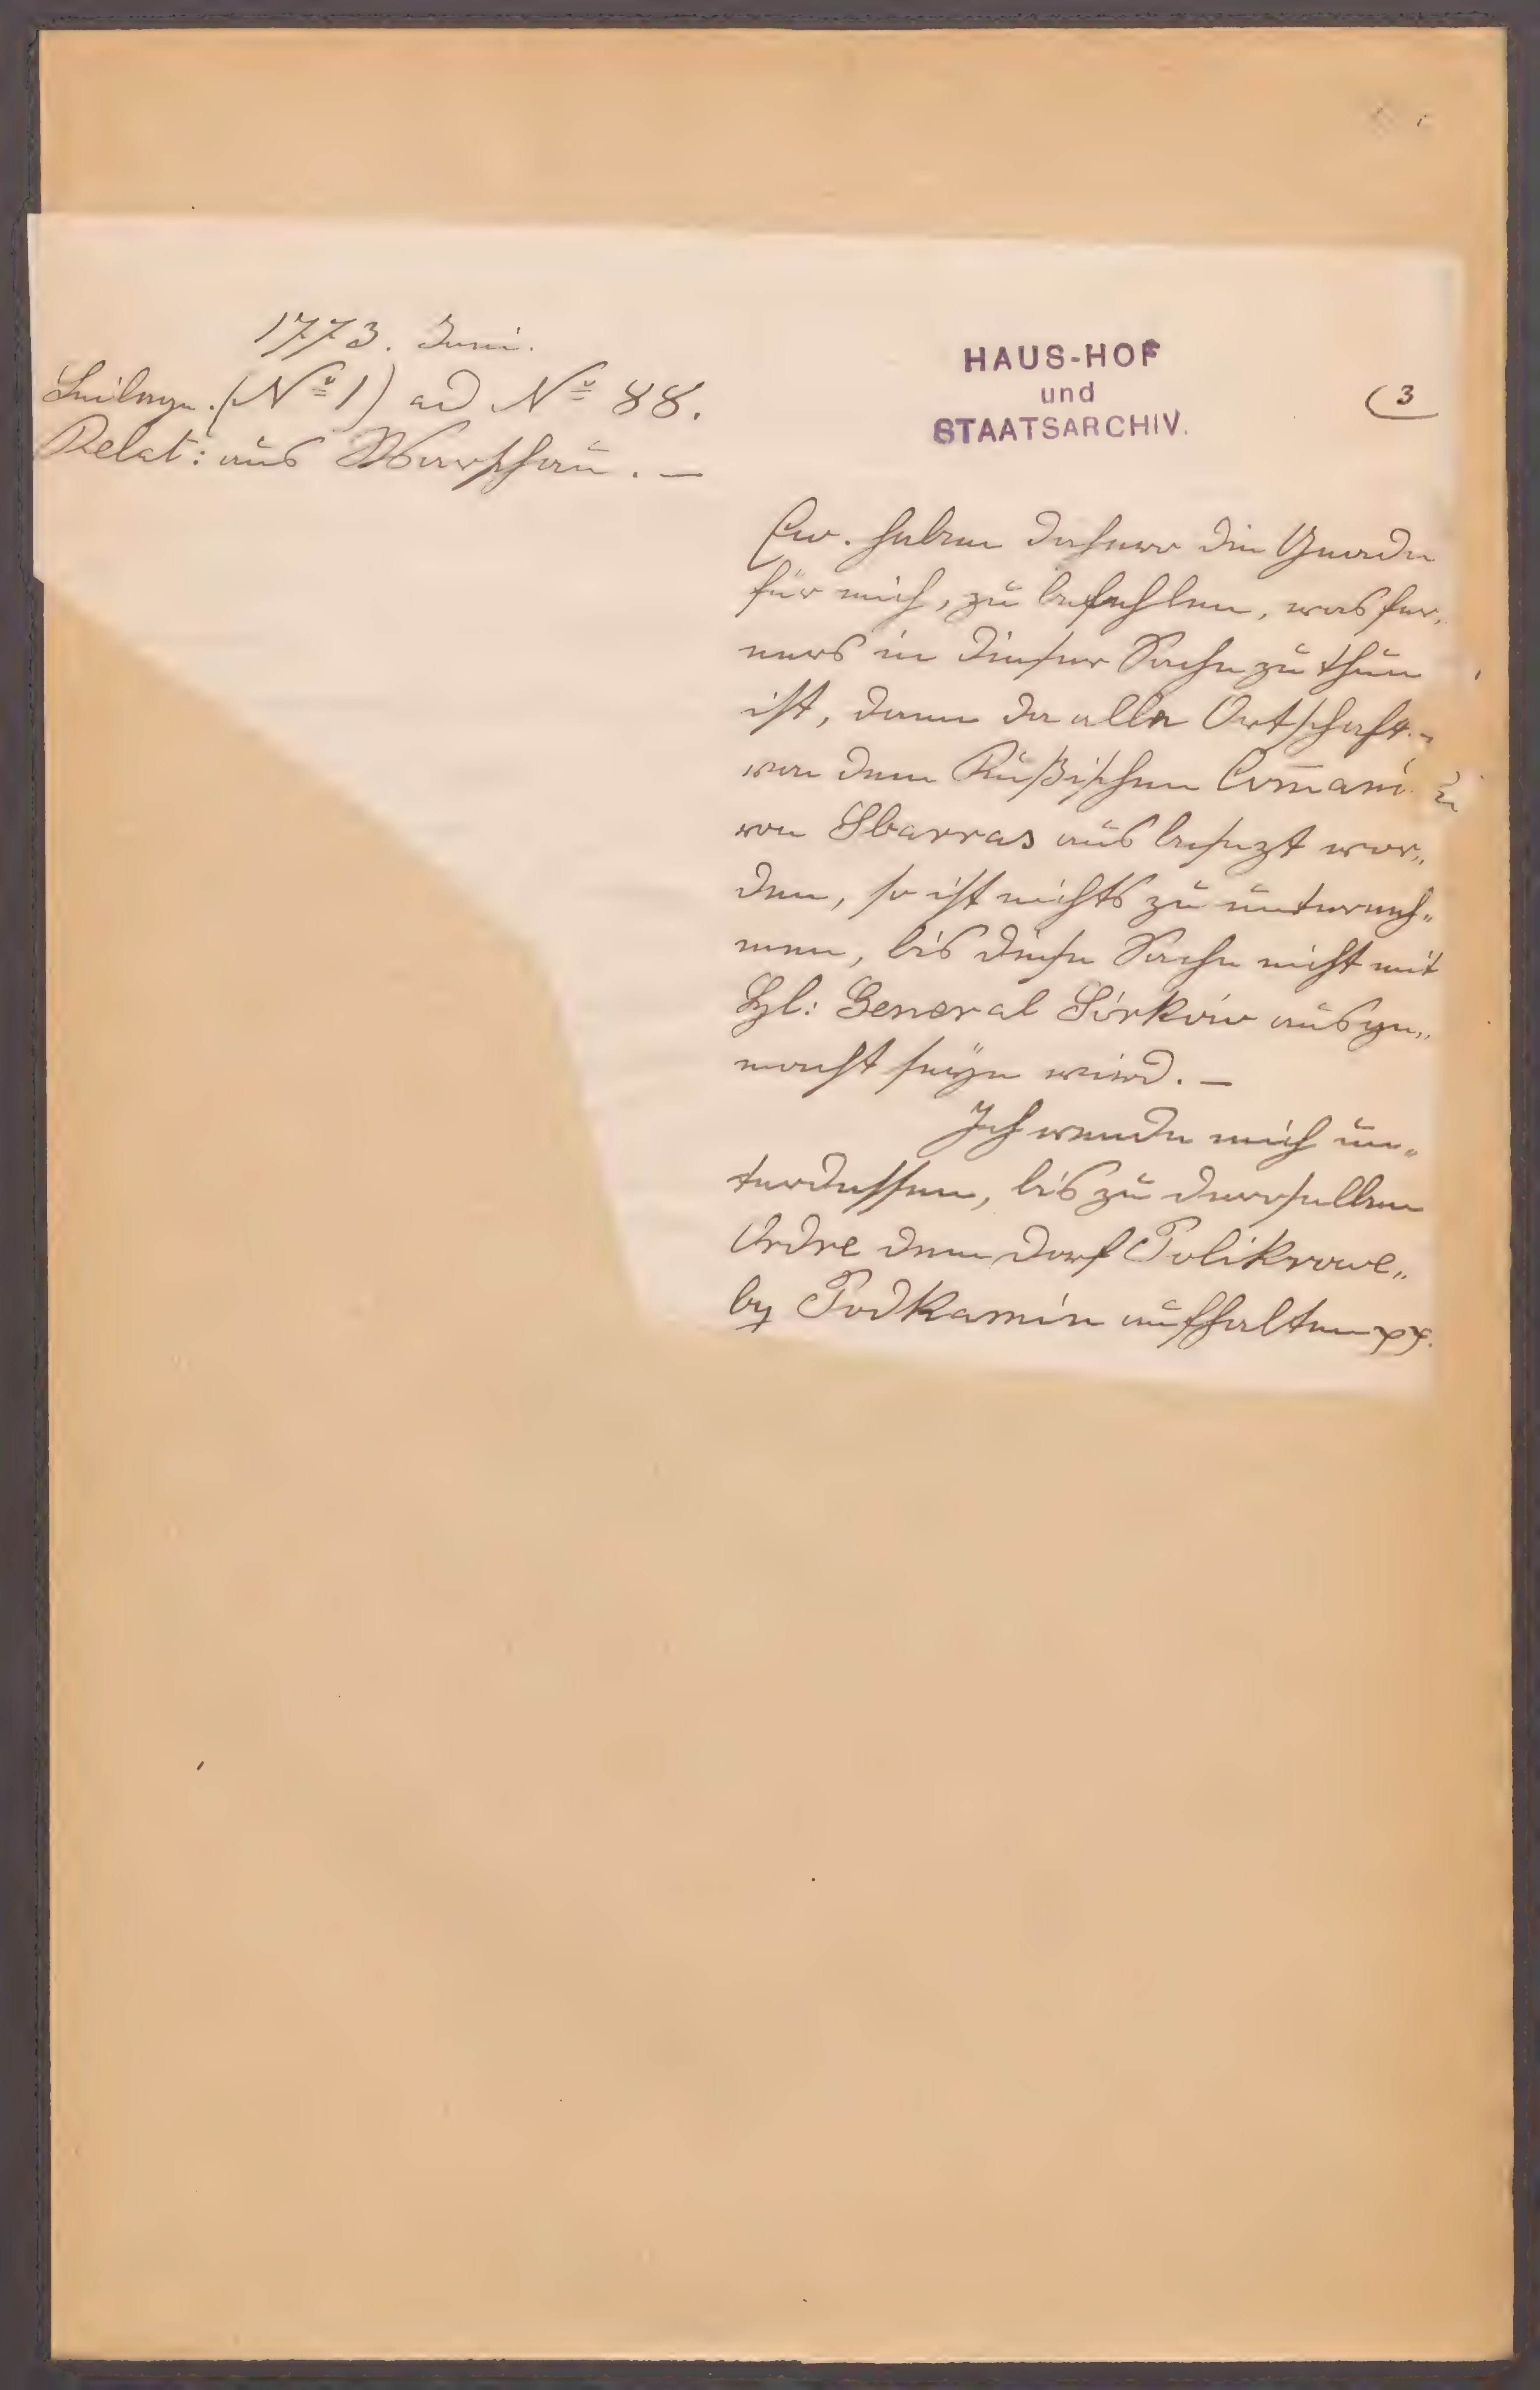 1773. Juni.
Beilage. (Nº 1) ad Nº 88.
Relat: aus Warschau. —
HAUS-HOF
und
STAATSARCHIV.
3
Ew. haben dahero die Gnade
für mich, zu befehlen, was fer„
ners in dieser Sache zu thun
ist, dann da alle Ortschaft
von dem Rußischen Com̄an
von Sbarras aus besezt wor„
den, so ist nichts zu unterneh„
men, bis diese Sache nicht mit
General Sirkow ausge„
macht seyn wird. —
Ich werde mich un„
terdessen, bis zu derselben
Ordre dem Dorf Polikrowe„
by Podkamin aufhalten